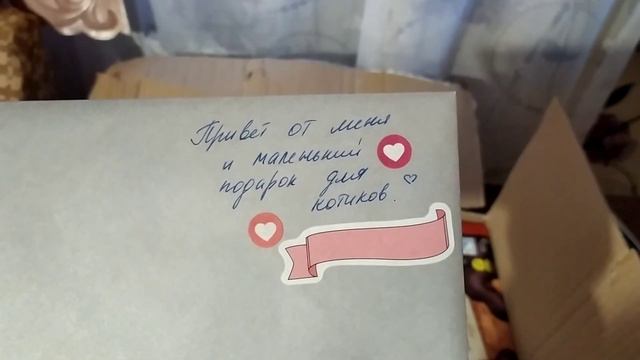 Привет от меня
и маленький
подарок для
котиков.